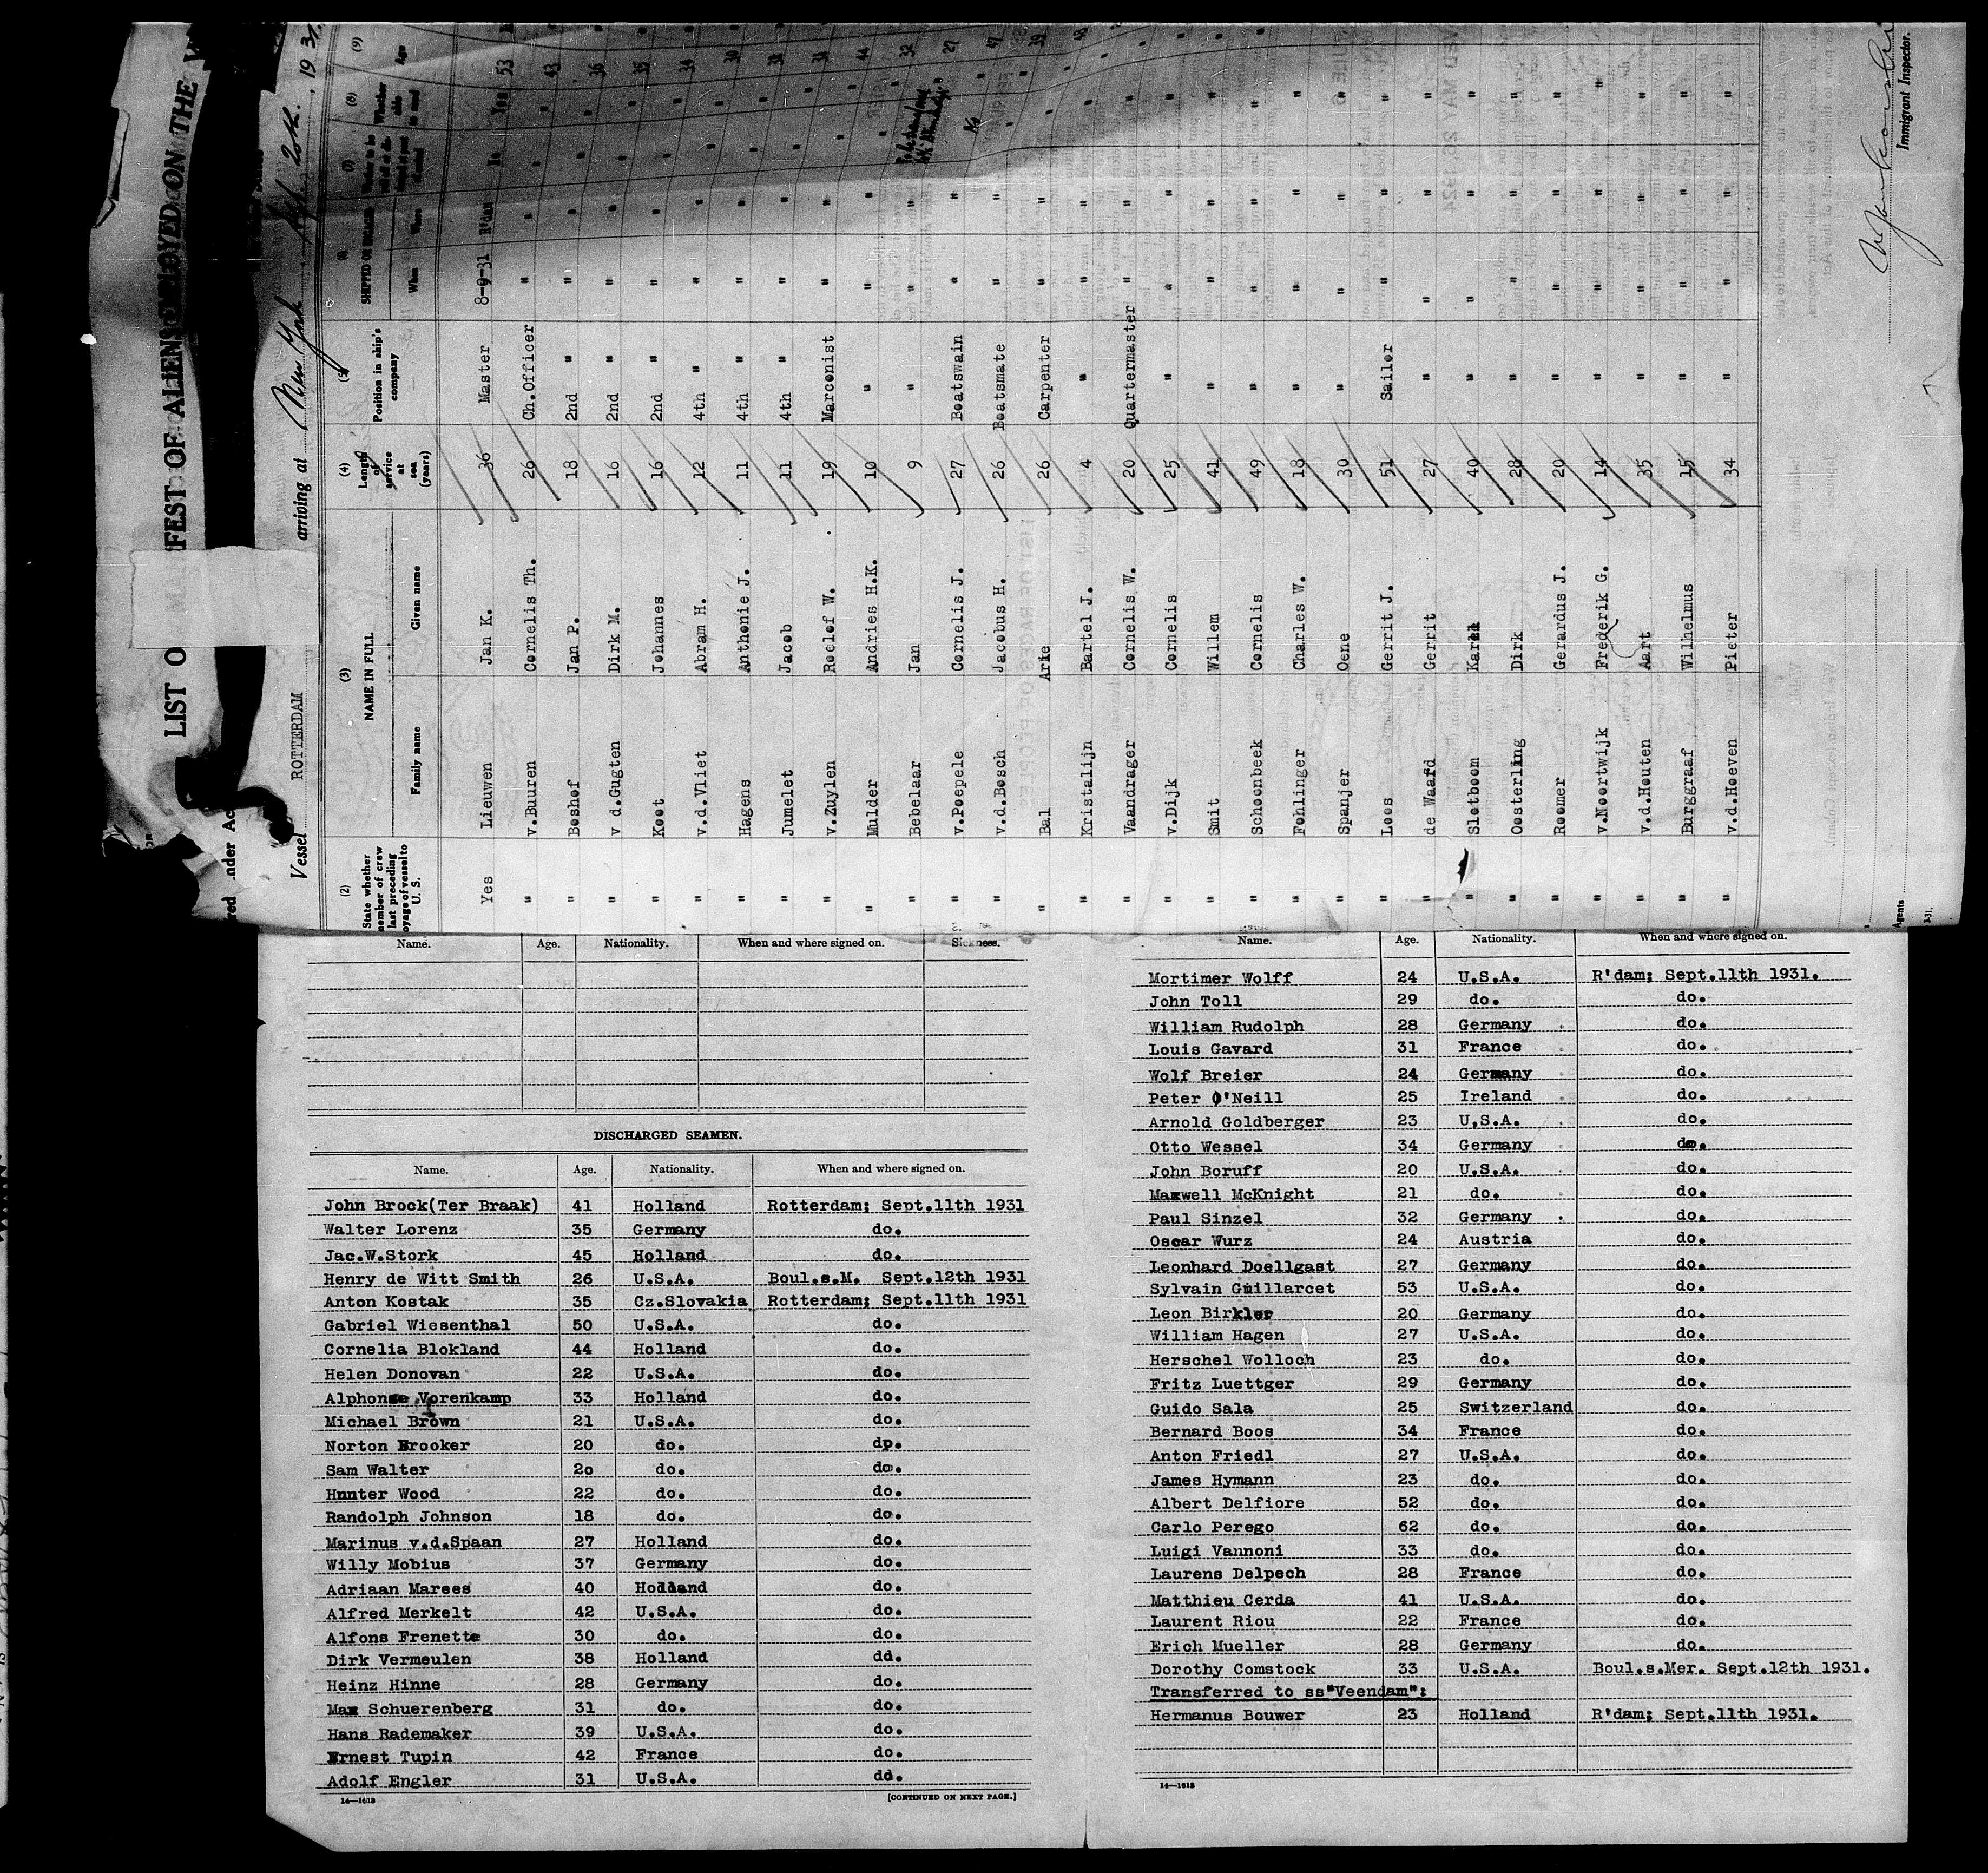 LIST O M FEST OF ALIENS EMPLOYED ON THE
red nder Ac
Vessel ROTTERDAM arriving at New York 20th. , 193
(2) (3) (4) (5) (6) (7) (8) (9)
State whether member of crew last preceding voyage of vessel to U. S.
NAME IN FULL
Family name Given name
Length of service at sea (years)
Position in ship's company
SHIPPED OR ENGAGED
When Where
Age
Yes Lieuwen Jan K. 36 Master 8-9-31 R'dam No Yes 53
" v.Buuren Cornelis Th. 26 Ch.Officer " " " " 43
" Boshof Jan P. 18 2nd " " " " " 36
" v d.Gugten Dirk M. 16 2nd " " " " " 35
" Koot Johannes 16 2nd " " " " " 34
" v.d.Vliet Abram H. 12 4th " " " " " 30
" Hagens Anthonie J. 11 4th " " " " "
" Jumelet Jacob 11 4th " " " " "
" v.Zuylen Roelof W. 19 Marconist " " " " 44
" Mulder Andries H.K. 10 " " " " " 32
" Bebelaar Jan 9 " " " 27
" v.Poepele Cornelis J. 27 Boatswain " " No " 47
" v.d.Bosch Jacobus H. 26 Boatsmate " " " " 39
" Bal Arie 26 Carpenter " " " " 48
" Kristalijn Bartel J. 4 " " " " "
" Vaandrager Cornelis W. 20 Quartermaster " " " "
" v.Dijk Cornelis 25 " " " " "
" Smit Willem 41 " " " " "
" Schoonbeek Cornelis 49 " " " " "
" Fohlinger Charles W. 18 " " " " "
" Spanjer Oene 30 " " " " "
" Loos Gerrit J. 51 Sailor " " " "
" de Waard Gerrit 27 " " " " "
" Slotboom Karel 40 " " " " "
" Oosterling Dirk 28 " " " " "
" Roomer Gerardus J. 20 " " " " "
" v.Noortwijk Frederik G. 14 " " " " "
" v.d.Houten Aart 35 " " " " "
" Burggraaf Wilhelmus 15 " " " " "
" v.d.Hoeven Pieter 34 " " " " "
Agents
3-31.
Immigrant Inspector.
Name. Age. Nationality. When and where signed on. Sickness.
DISCHARGED SEAMEN.
Name. Age. Nationality. When and where signed on.
John Brock(Ter Braak) 41 Holland Rotterdam; Sept.11th 1931
Walter Lorenz 35 Germany do.
Jac.W.Stork 45 Holland do.
Henry de Witt Smith 26 U.S.A. Boul.s.M. Sept.12th 1931
Anton Kostak 35 Cz.Slovakia Rotterdam; Sept.11th 1931
Gabriel Wiesenthal 50 U.S.A. do.
Cornelia Blokland 44 Holland do.
Helen Donovan 22 U.S.A. do.
Alphonse Vorenkamp 33 Holland do.
Michael Brown 21 U.S.A. do.
Norton Brooker 20 do. dp.
Sam Walter 2o do. do.
Hnnter Wood 22 do. do.
Randolph Johnson 18 do. do.
Marinus v.d.Spaan 27 Holland do.
Willy Mobius 37 Germany do.
Adriaan Marees 40 Holland do.
Alfred Merkelt 42 U.S.A. do.
Alfons Frenette 30 do. do.
Dirk Vermeulen 38 Holland dd.
Heinz Hinne 28 Germany do.
Max Schuerenberg 31 do. do.
Hans Rademaker 39 U.S.A. do.
Ernest Tupin 42 France do.
Adolf Engler 31 U.S.A. dd.
14—1613 [CONTINUED ON NEXT PAGE.]
Name. Age. Nationality. When and where signed on.
Mortimer Wolff 24 U.S.A. R'dam; Sept.11th 1931.
John Toll 29 do. do.
William Rudolph 28 Germany do.
Louis Gavard 31 France do.
Wolf Breier 24 Germany do.
Peter O'Neill 25 Ireland do.
Arnold Goldberger 23 U.S.A. do.
Otto Wessel 34 Germany do.
John Boruff 20 U.S.A. do.
Maxwell McKnight 21 do. do.
Paul Sinzel 32 Germany do.
Oscar Wurz 24 Austria do.
Leonhard Doellgast 27 Germany do.
Sylvain Guillarcet 53 U.S.A. do.
Leon Birkler 20 Germany do.
William Hagen 27 U.S.A. do.
Herschel Wolloch 23 do. do.
Fritz Luettger 29 Germany do.
Guido Sala 25 Switzerland do.
Bernard Boos 34 France do.
Anton Friedl 27 U.S.A. do.
James Hymann 23 do. do.
Albert Delfiore 52 do. do.
Carlo Perego 62 do. do.
Luigi Vannoni 33 do. do.
Laurens Delpech 28 France do.
Matthieu Cerda 41 U.S.A. do.
Laurent Riou 22 France do.
Erich Mueller 28 Germany do.
Dorothy Comstock 33 U.S.A. Boul.s.Mer. Sept.12th 1931.
Transferred to ss"Veendam":
Hermanus Bouwer 23 Holland R'dam; Sept.11th 1931.
14—1613